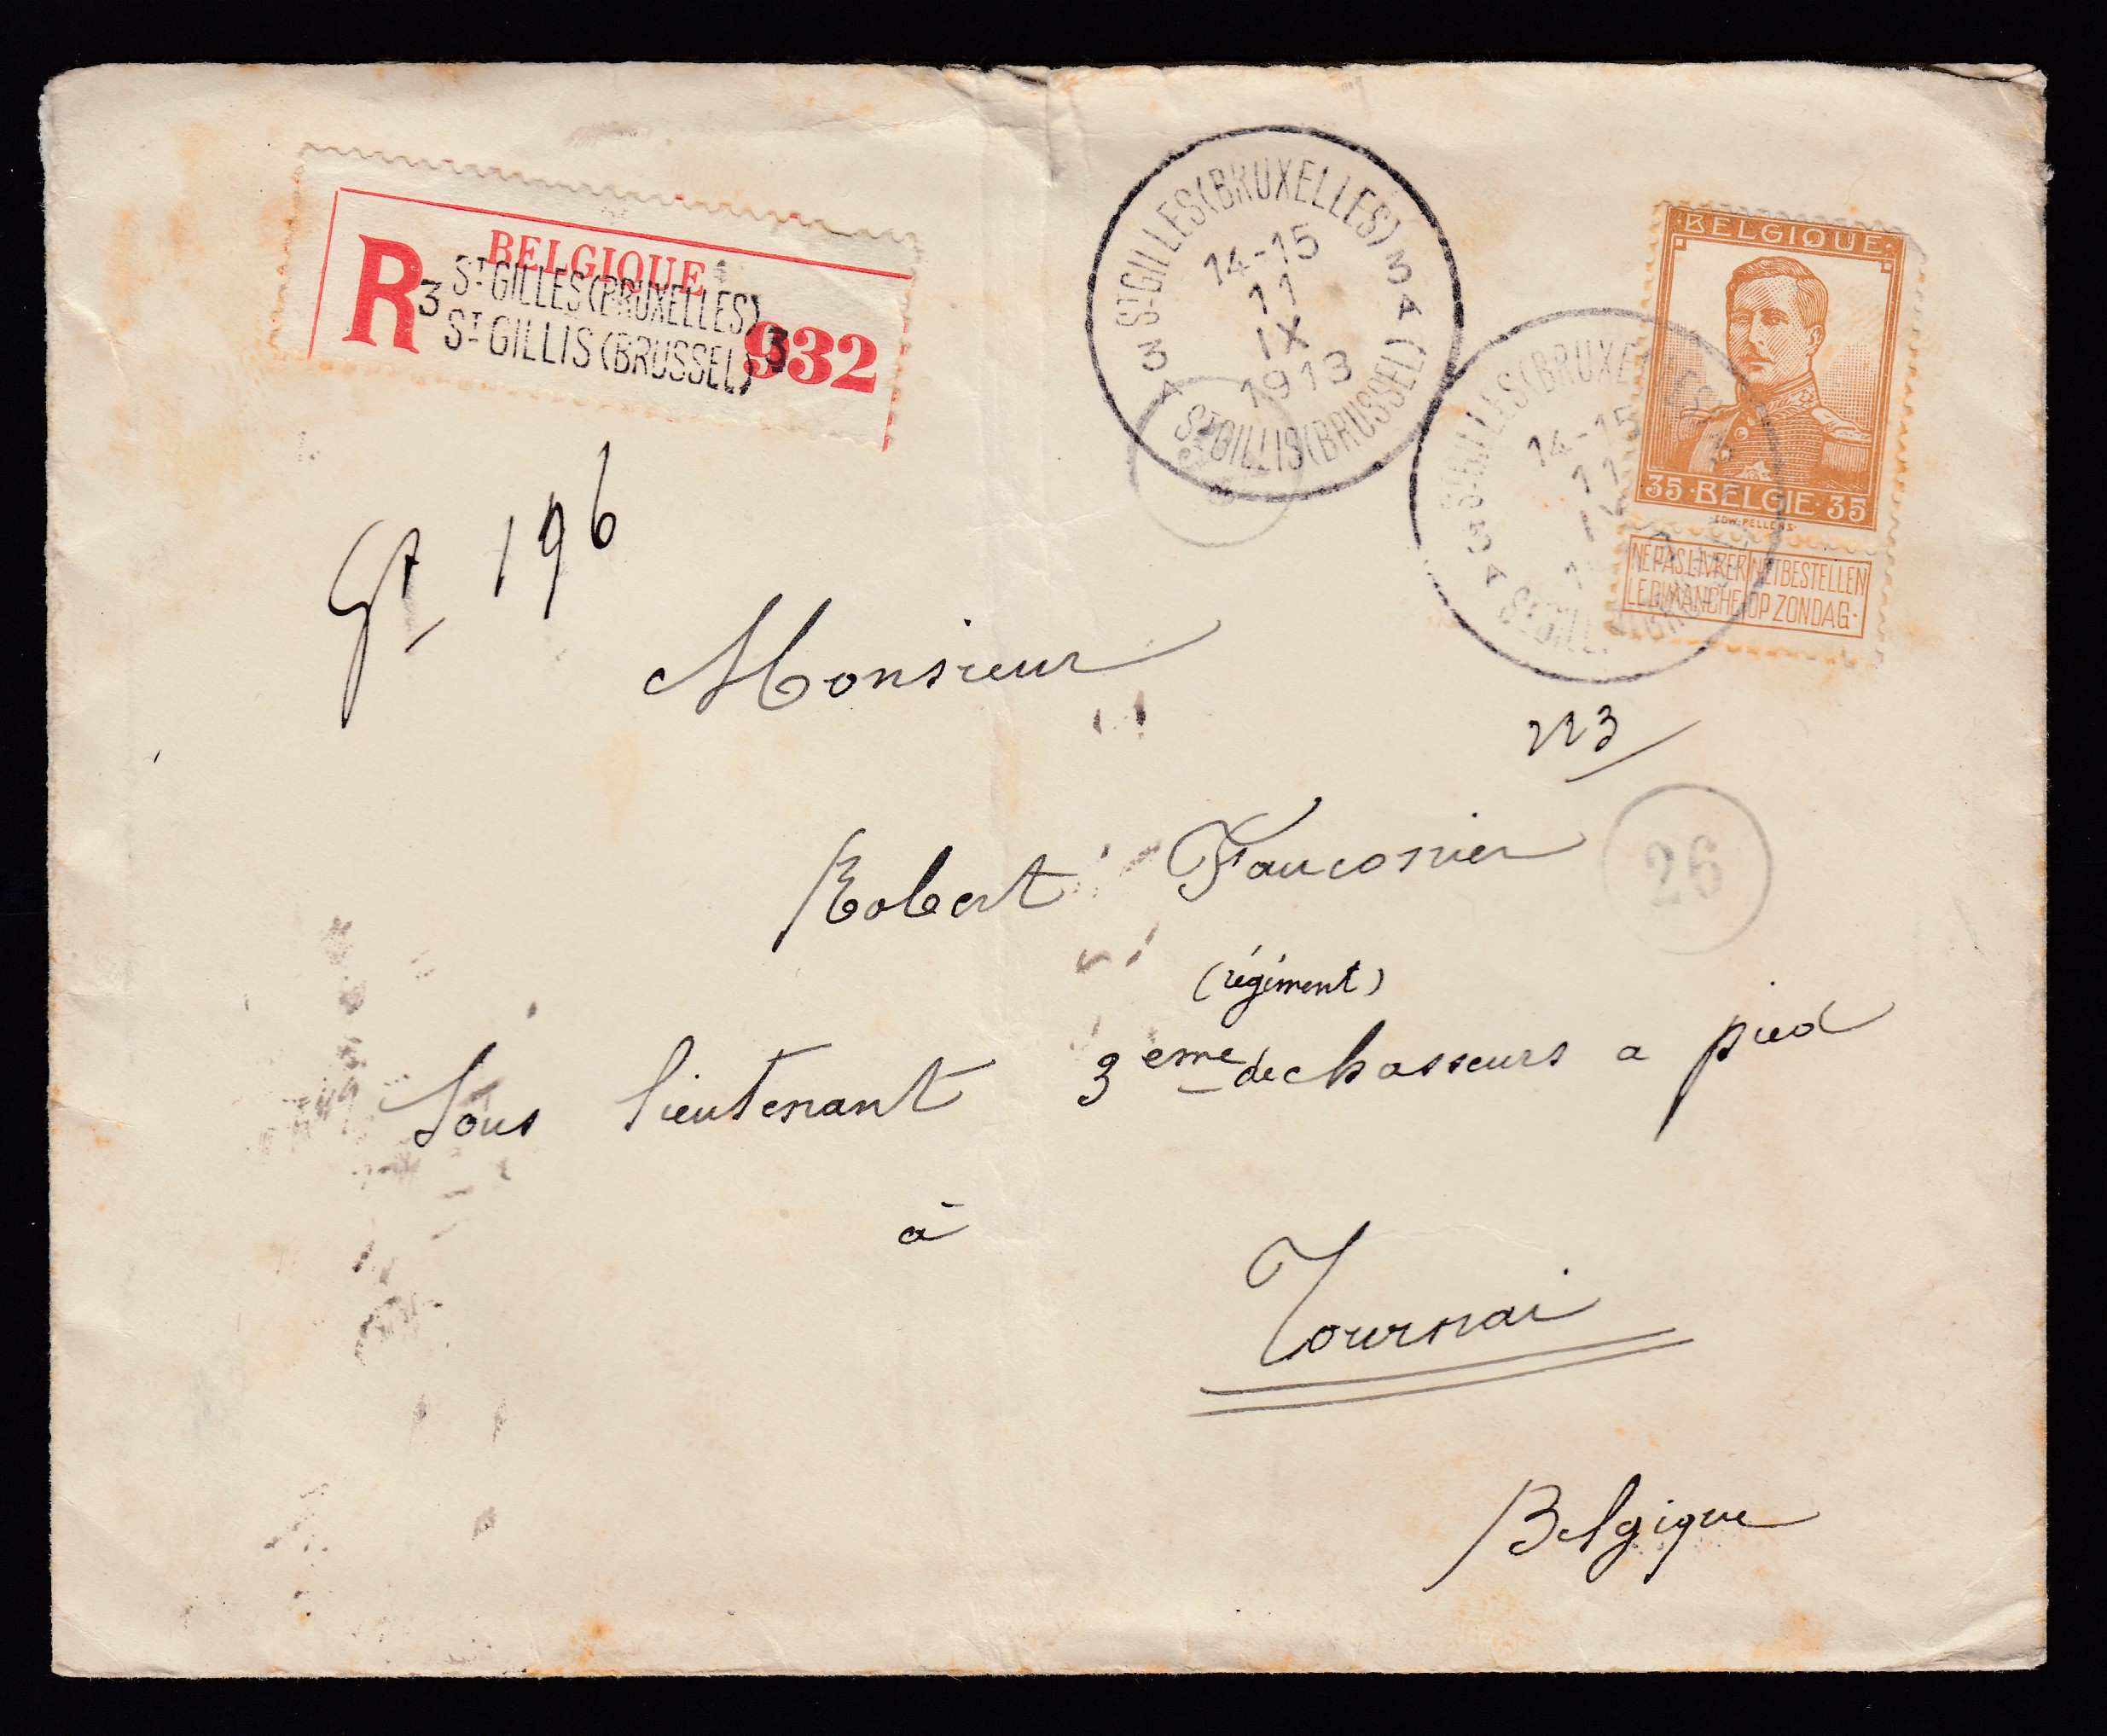 BELGIQUE
R
3 ST GILLES (BRUXELLES) 3
ST GILLIS (BRUSSEL)
932
ST GILLES (BRUXELLES)
3 A
14-15
11
IX
1913
3 A
ST GILLIS (BRUSSEL)
·BELGIQUE·
35·BELGIE·35
EDW. PELLENS·
NE PAS LIVRER LE DIMANCHE
NIET BESTELLEN OP ZONDAG·
14-15
11
196
Monsieur
223
Robert Fauconier
26
(régiment)
Sous lieutenant 3eme de chasseurs a pied
à
Tournai
Belgique